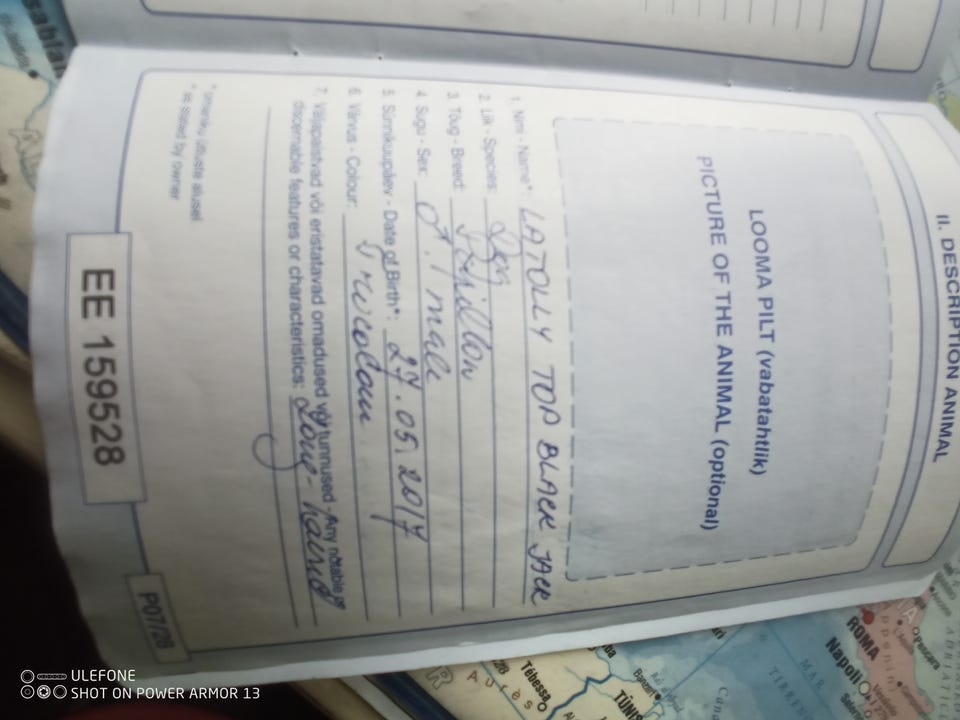 II. DESCRIPTION ANIMAL
LOOMA PILT (vabatahtlik)
PICTURE OF THE ANIMAL (optional)
1. Nimi - Name*: LATOLLY TOP BLACK JACK
2. Liik - Species: Dog
3. Tõug - Breed:
4. Sugu - Sex: ♂. / male
5. Sünnikuupäev - Date of Birth*: 27.05.2017
6. Värvus - Colour:
7. Väljapaistvad või eristatavad omadused või tunnused - Any notable or
discernable features or characteristics: Long-haired
* omaniku ütluste alusel
* as stated by owner
EE 159528
P07/28
ROMA
Napoli
Tébessa
Aurès
ULEFONE
SHOT ON POWER ARMOR 13